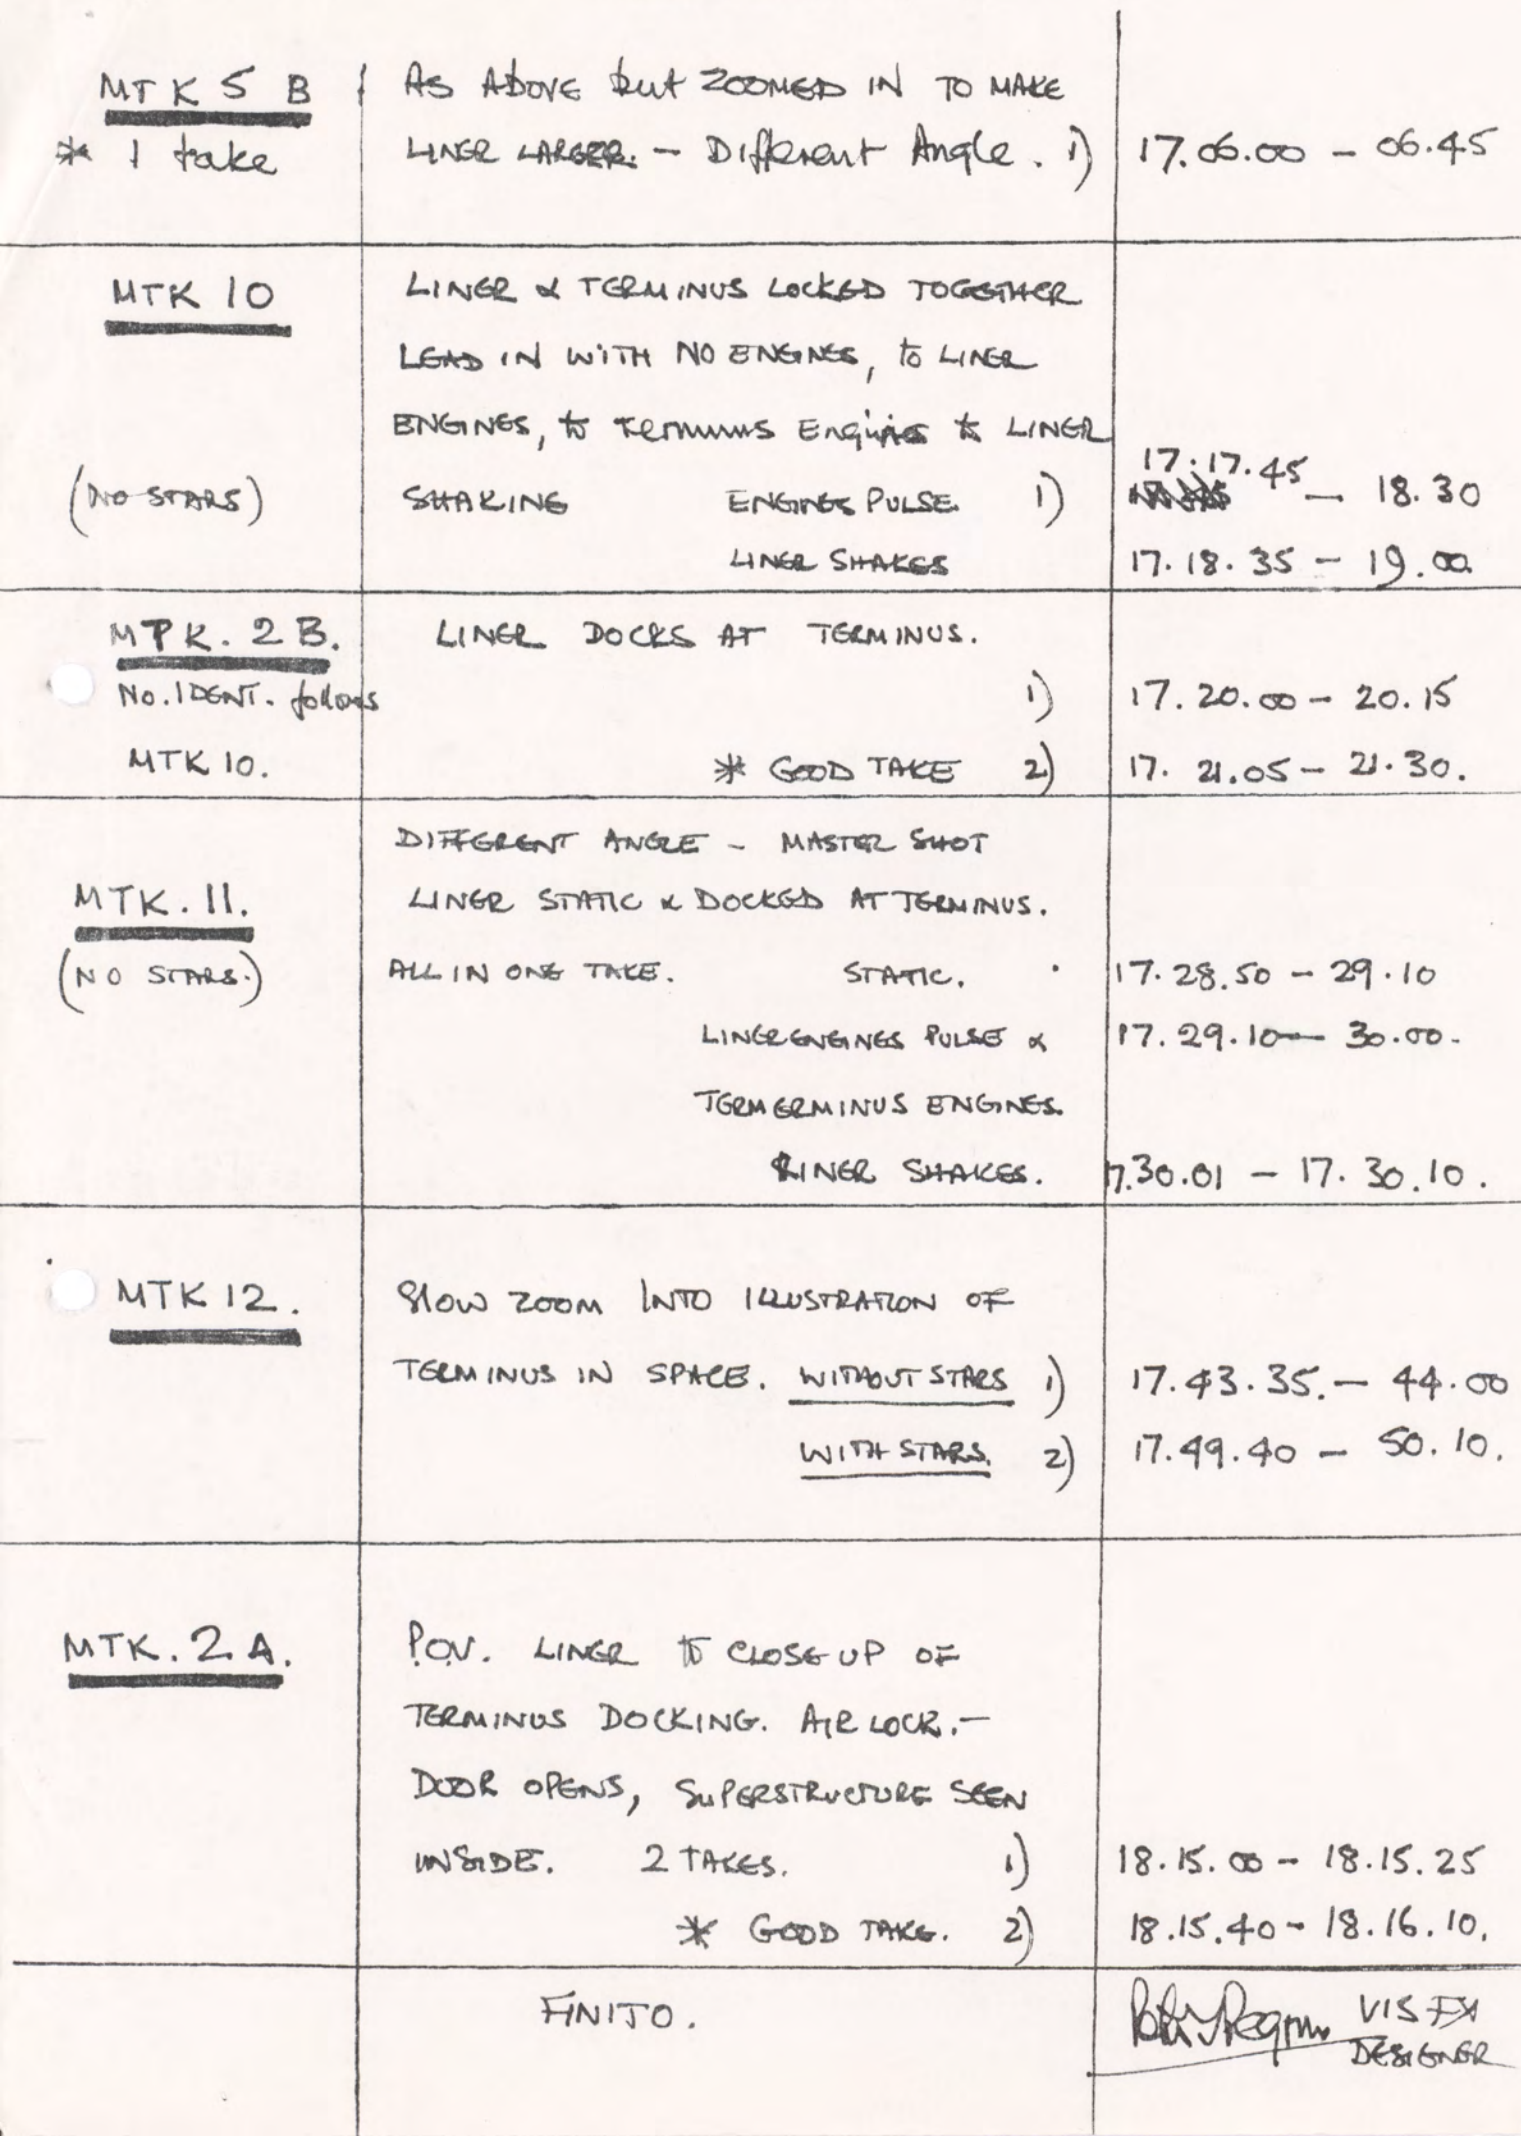 MTK 5 B
* 1 take
AS ABOVE but ZOOMED IN TO MAKE
LINER LARGER. - Different Angle. 1) 17.06.00 - 06.45
MTK 10
(NO STARS)
LINER & TERMINUS LOCKED TOGETHER
LEAD IN WITH NO ENGINES, to LINER
ENGINES, to Terminus Engines to LINER
SHAKING ENGINES PULSE 1) 17.17.45 - 18.30
LINER SHAKES 17.18.35 - 19.00
MTK. 2 B.
No. IDENT. follows
MTK 10.
LINER DOCKS AT TERMINUS.
1) 17.20.00 - 20.15
* GOOD TAKE 2) 17. 21.05 - 21.30.
MTK. 11.
(NO STARS.)
DIFFERENT ANGLE - MASTER SHOT
LINER STATIC & DOCKED AT TERMINUS.
ALL IN ONE TAKE. STATIC. 17.28.50 - 29.10
LINER ENGINES PULSE & 17.29.10 - 30.00.
TERMERMINUS ENGINES.
LINER SHAKES. 17.30.01 - 17.30.10.
MTK 12.
Slow ZOOM INTO ILLUSTRATION OF
TERMINUS IN SPACE. WITHOUT STARS 1) 17.43.35. - 44.00
WITH STARS. 2) 17.49.40 - 50.10.
MTK. 2 A.
P.O.V. LINER to CLOSE UP OF
TERMINUS DOCKING. AIR LOCK. -
DOOR OPENS, SUPERSTRUCTURE SEEN
INSIDE. 2 TAKES. 1) 18.15.00 - 18.15.25
* GOOD TAKE. 2) 18.15.40 - 18.16.10.
FINITO.
VIS FX
DESIGNER